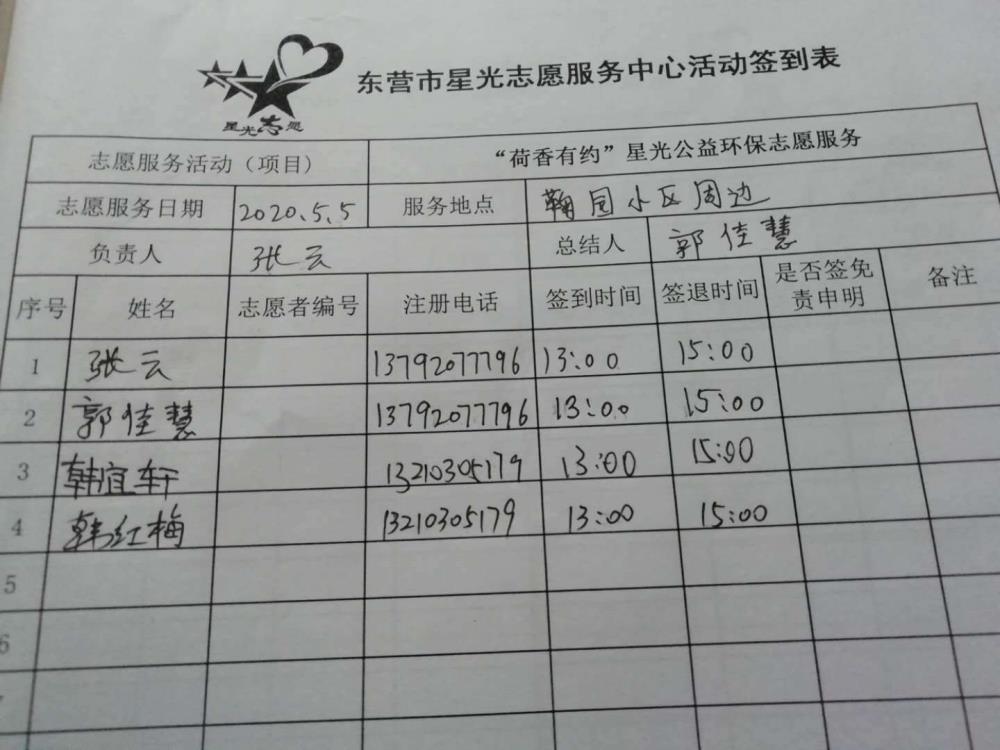 星光志愿
东营市星光志愿服务中心活动签到表
志愿服务活动（项目） “荷香有约”星光公益环保志愿服务
志愿服务日期 2020.5.5 服务地点 鞠园小区周边
负责人 张云 总结人 郭佳慧
序号 姓名 志愿者编号 注册电话 签到时间 签退时间 是否签免责申明 备注
1 张云 13792077796 13:00 15:00
2 郭佳慧 13792077796 13:00 15:00
3 韩宜轩 13210305179 13:00 15:00
4 韩红梅 13210305179 13:00 15:00
5
6